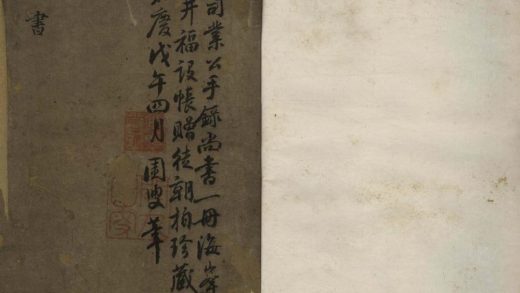 司業公手錄尚書一冊海
井福設帳贈徒朝柏珍藏
慶戊午四月 周叟筆
書